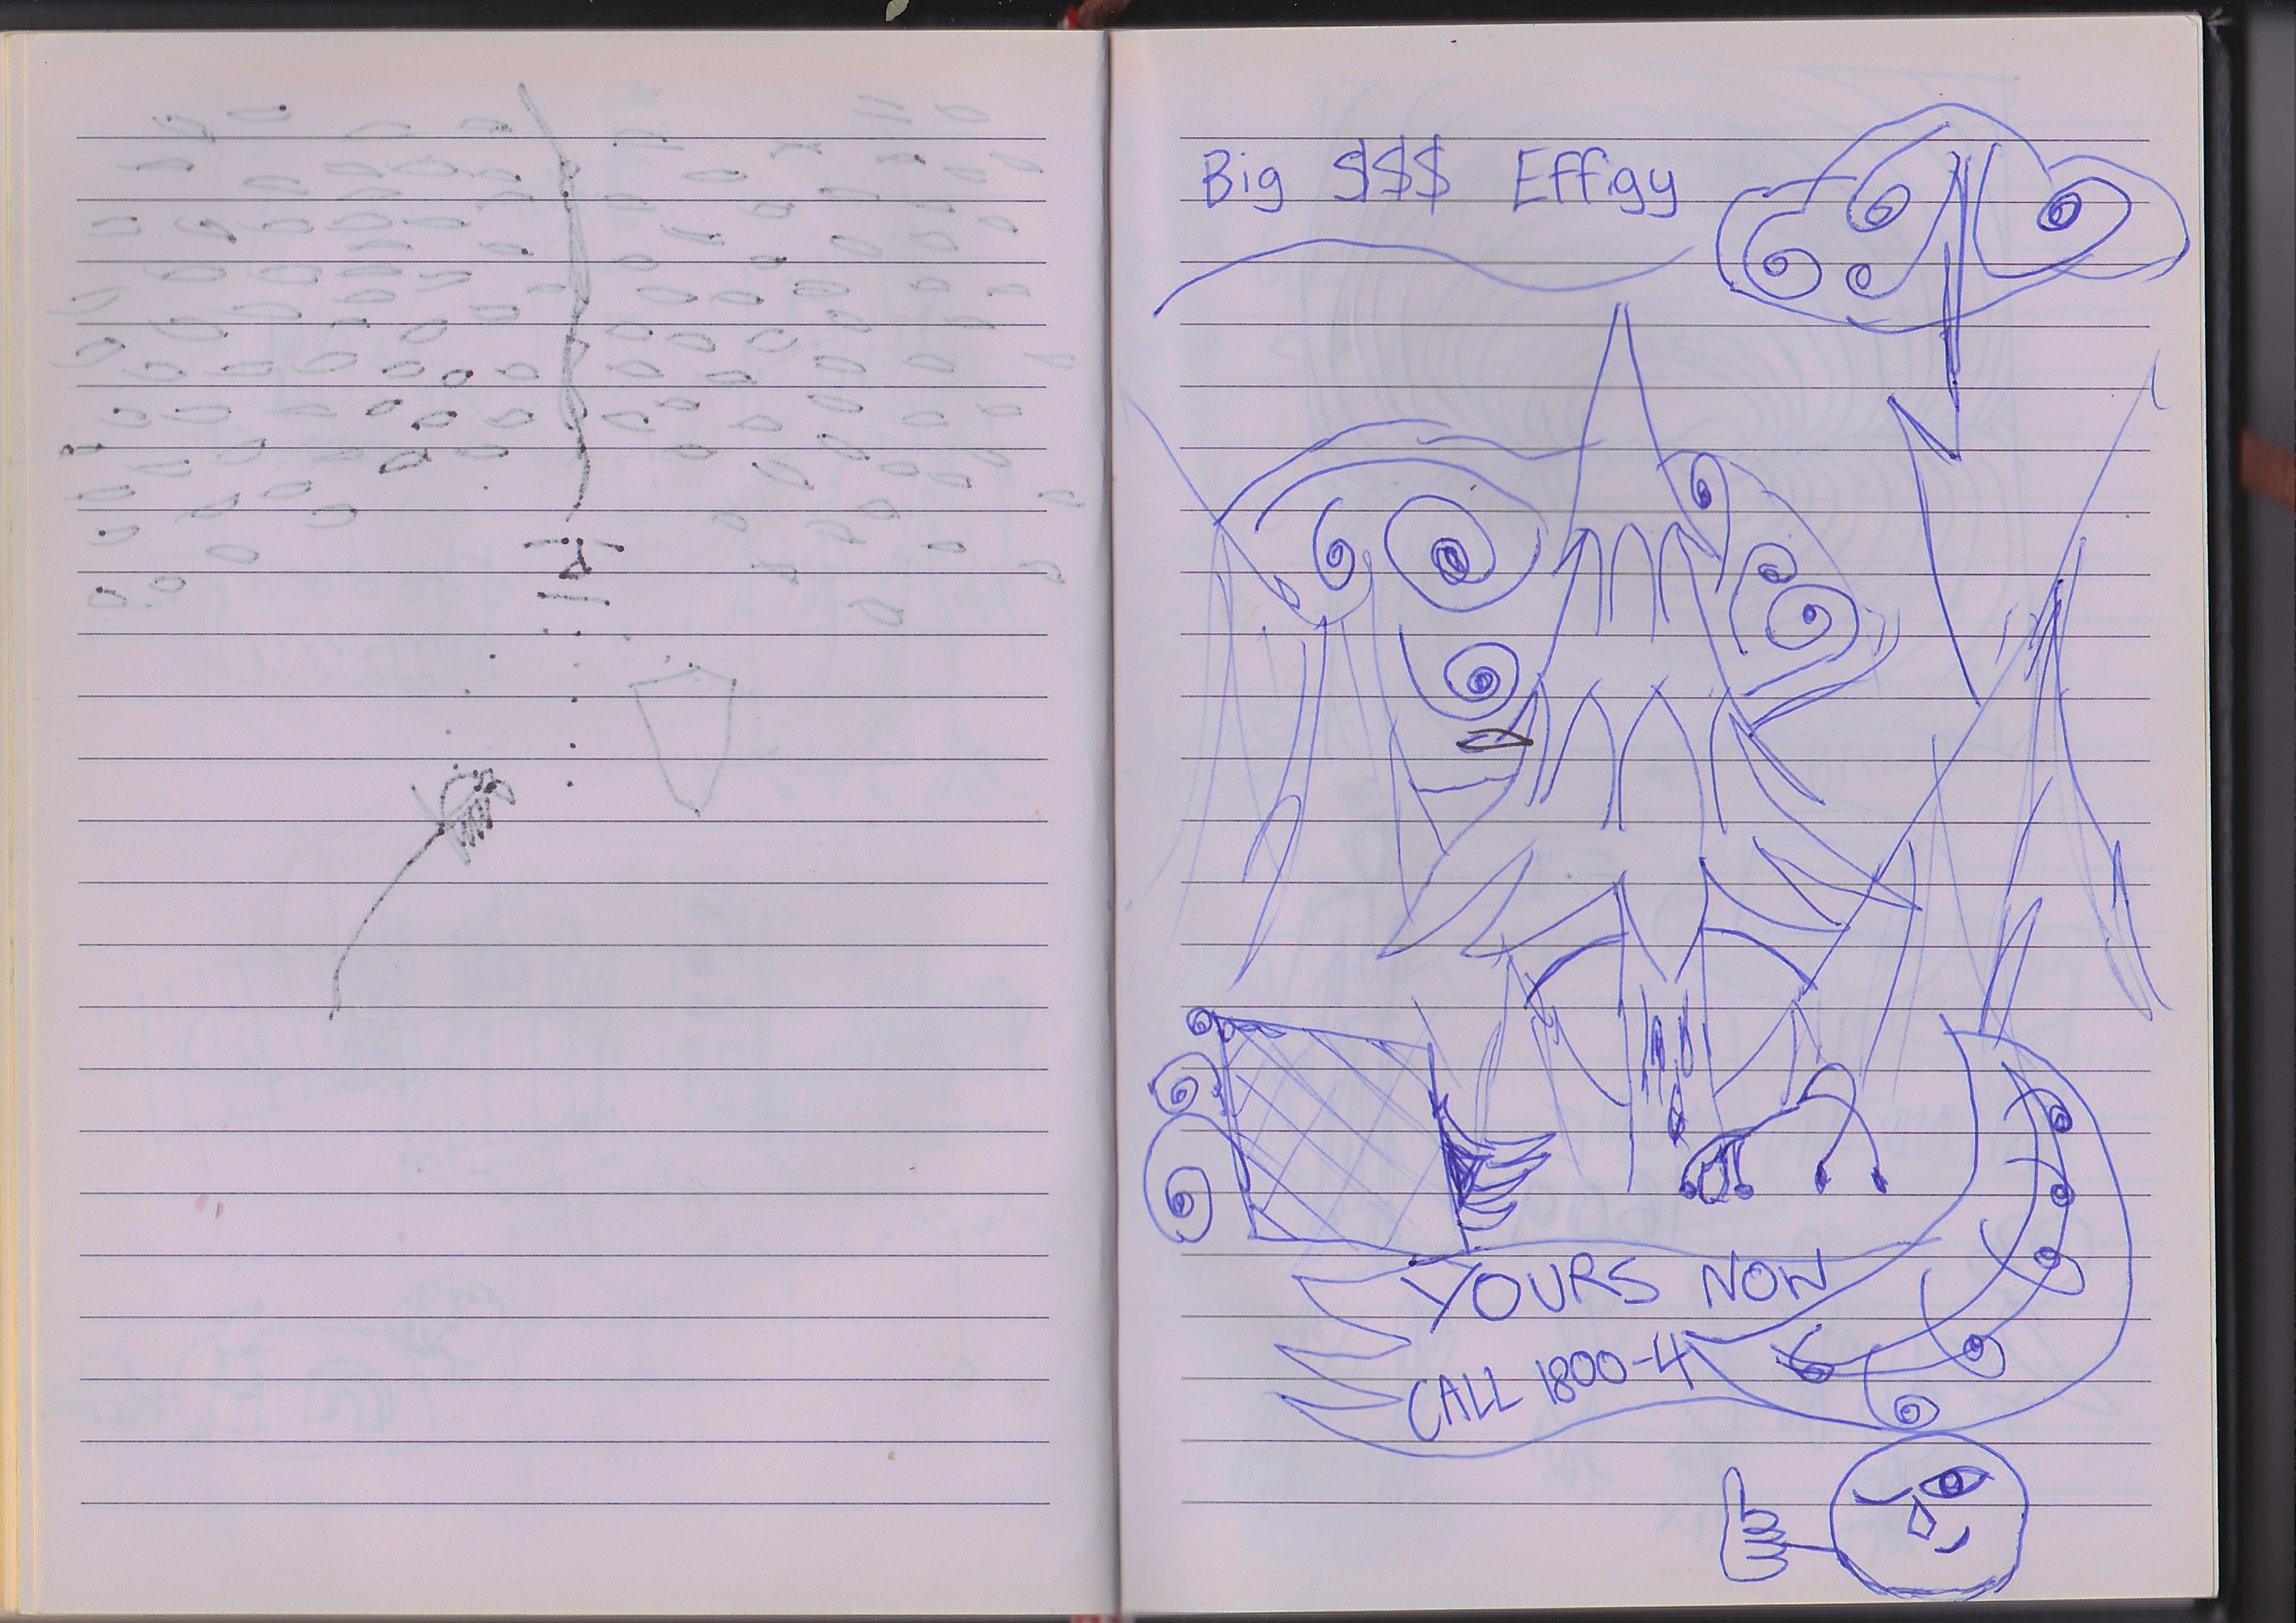 Big $$$ Effigy
YOURS NOW
CALL 1800-4